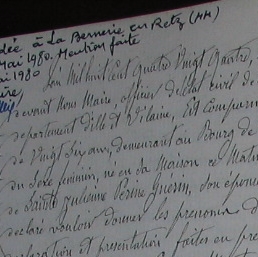 dée à La Bernerie en Retz (44)
Mai 1980. Mention faite
ai 1980
ire
L'an Mil huit Cent quatre Vingt quatre,
devant Nous Maire, officier de l'état civil de
département d'Ille et Vilaine, Est Comparu
de Vingt Six ans, demeurant au Bourg de
du Sexe féminin, né en Sa Maison ce Matin
de Sainte Julienne Perrine Guérin, Son épouse
déclaré vouloir donner les prénoms d
déclaration et présentation faites en pré